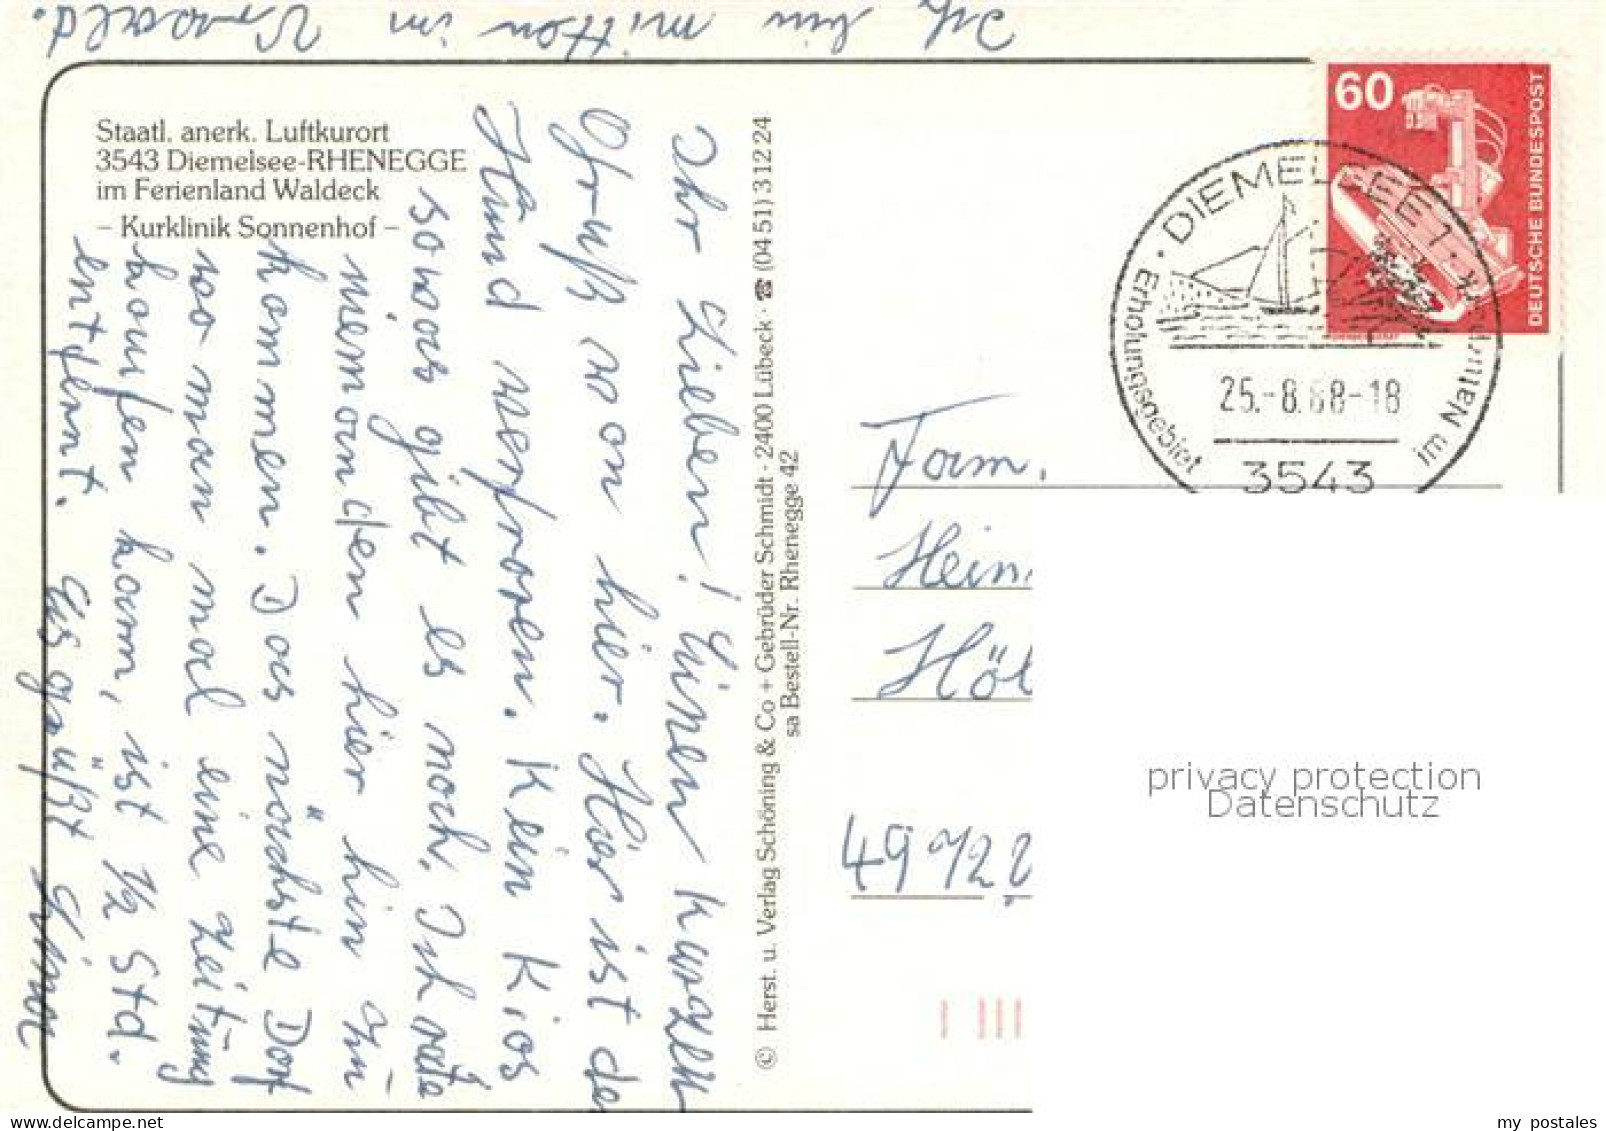 Ich bin mitten im Urwald.
Staatl. anerk. Luftkurort
3543 Diemelsee-RHENEGGE
im Ferienland Waldeck
– Kurklinik Sonnenhof –
Ihr Lieben! Einen kurzen
Gruß von hier. Hier ist de
Hund verfroren. Kein Kios
sowas gibt es noch. Ich rate
niemanden hier hin zu
kommen. Das nächste Dorf
wo man mal eine Zeitung
kaufen kann, ist 1/2 Std.
entfernt. Es grüßt
© Herst. u. Verlag Schöning & Co + Gebrüder Schmidt · 2400 Lübeck · ☎ (04 51) 3 12 24
sa Bestell-Nr. Rhenegge 42
60
DEUTSCHE BUNDESPOST
· DIEMELSEE 1 ·
Erholungsgebiet
im Naturpark
25.-8.88-18
3543
Fam.
Hein
Höl
49
privacy protection
Datenschutz
my postales